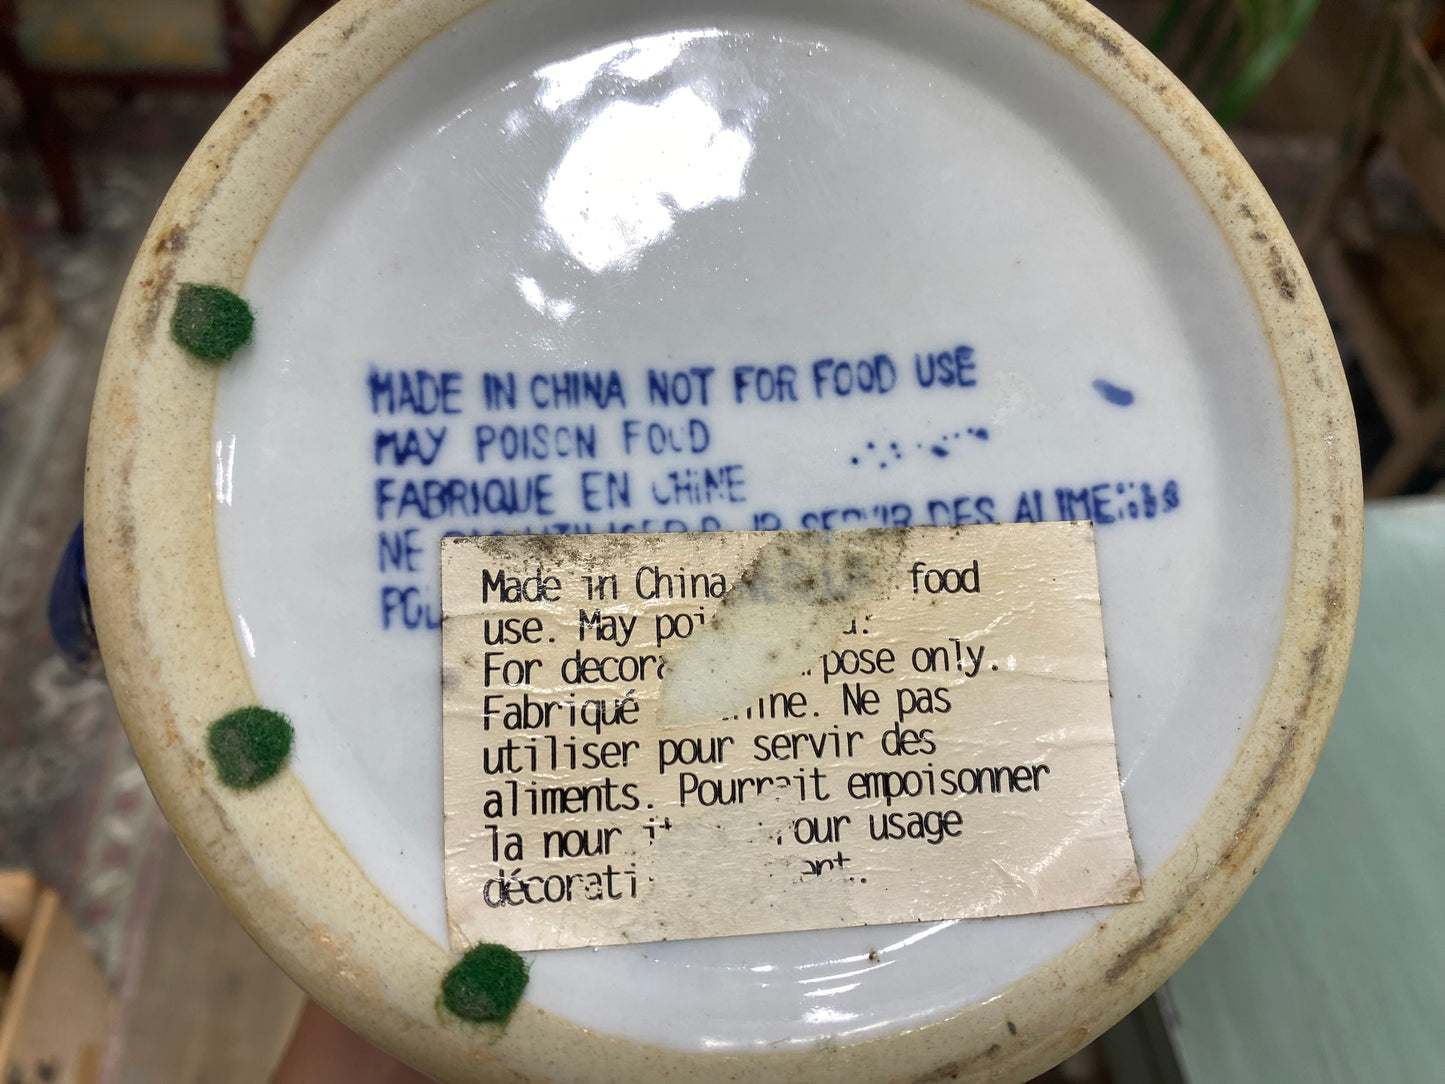 MADE IN CHINA NOT FOR FOOD USE
MAY POISON FOOD
FABRIQUE EN CHINE
NE SERVIR DES ALIMENTS
Made in China food
use. May
For only.
Fabriqué Chine. Ne pas
utiliser pour servir des
aliments. Pourrait empoisonner
la usage